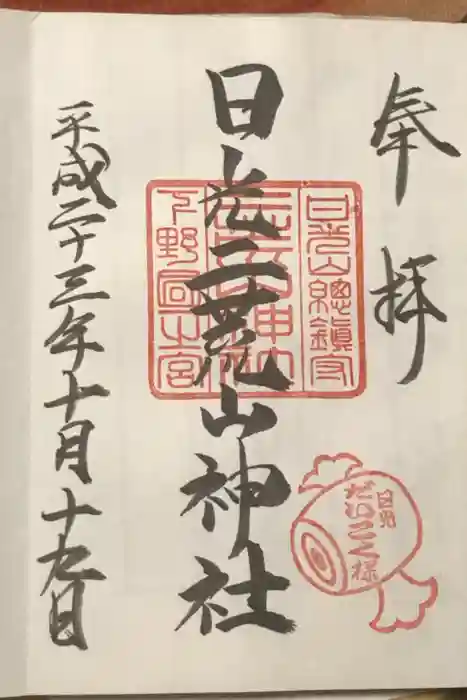 奉拝
日光二荒山神社
平成二十三年十月十九日
日光山總鎮守
二荒山神社
下野國一之宮
日光
だいこく様